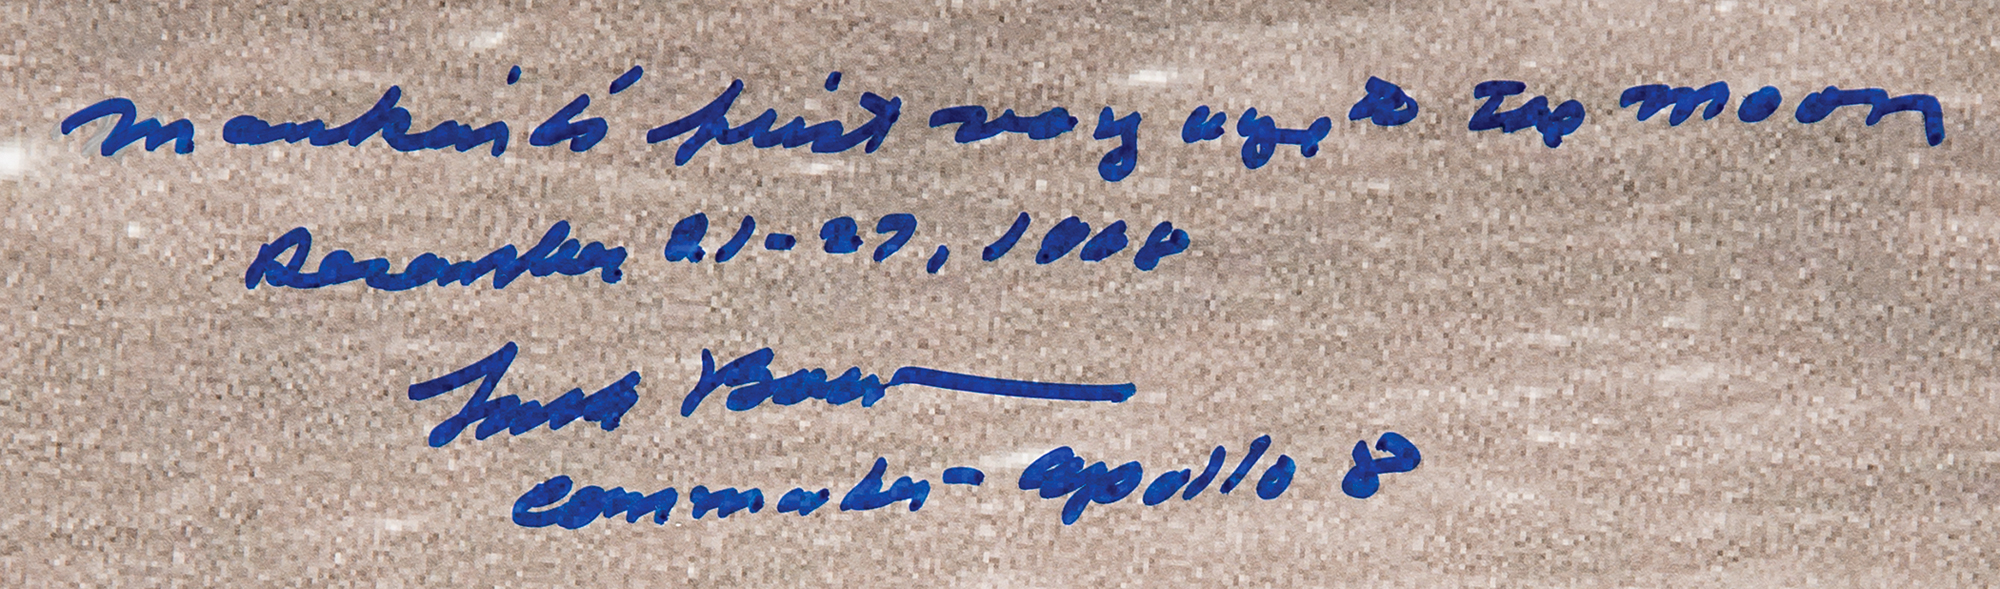 Mankind's first voyage to the moon
December 21-27, 1968
Frank Borman
Commander - Apollo 8